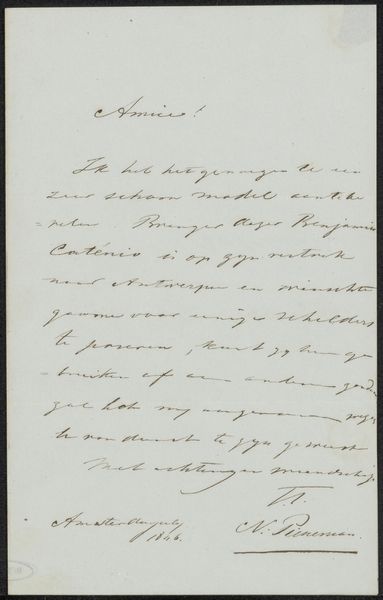 Amice!
Ik heb het genoegen te een
zeer schoon model aantebe
=velen. Brenger dezer Benjamin
Caténio is op zijn vertrek
naar Antwerpen en wenschte
gaarne voor eenige schilders
te poseren, kunt gy hem ge
bruiken of aan anderen
zal het my aangenaam
te van dienst te zyn geweest
Met achting en vriendschap
T.t.
N. Pieneman.
Amsterdam July
1846.